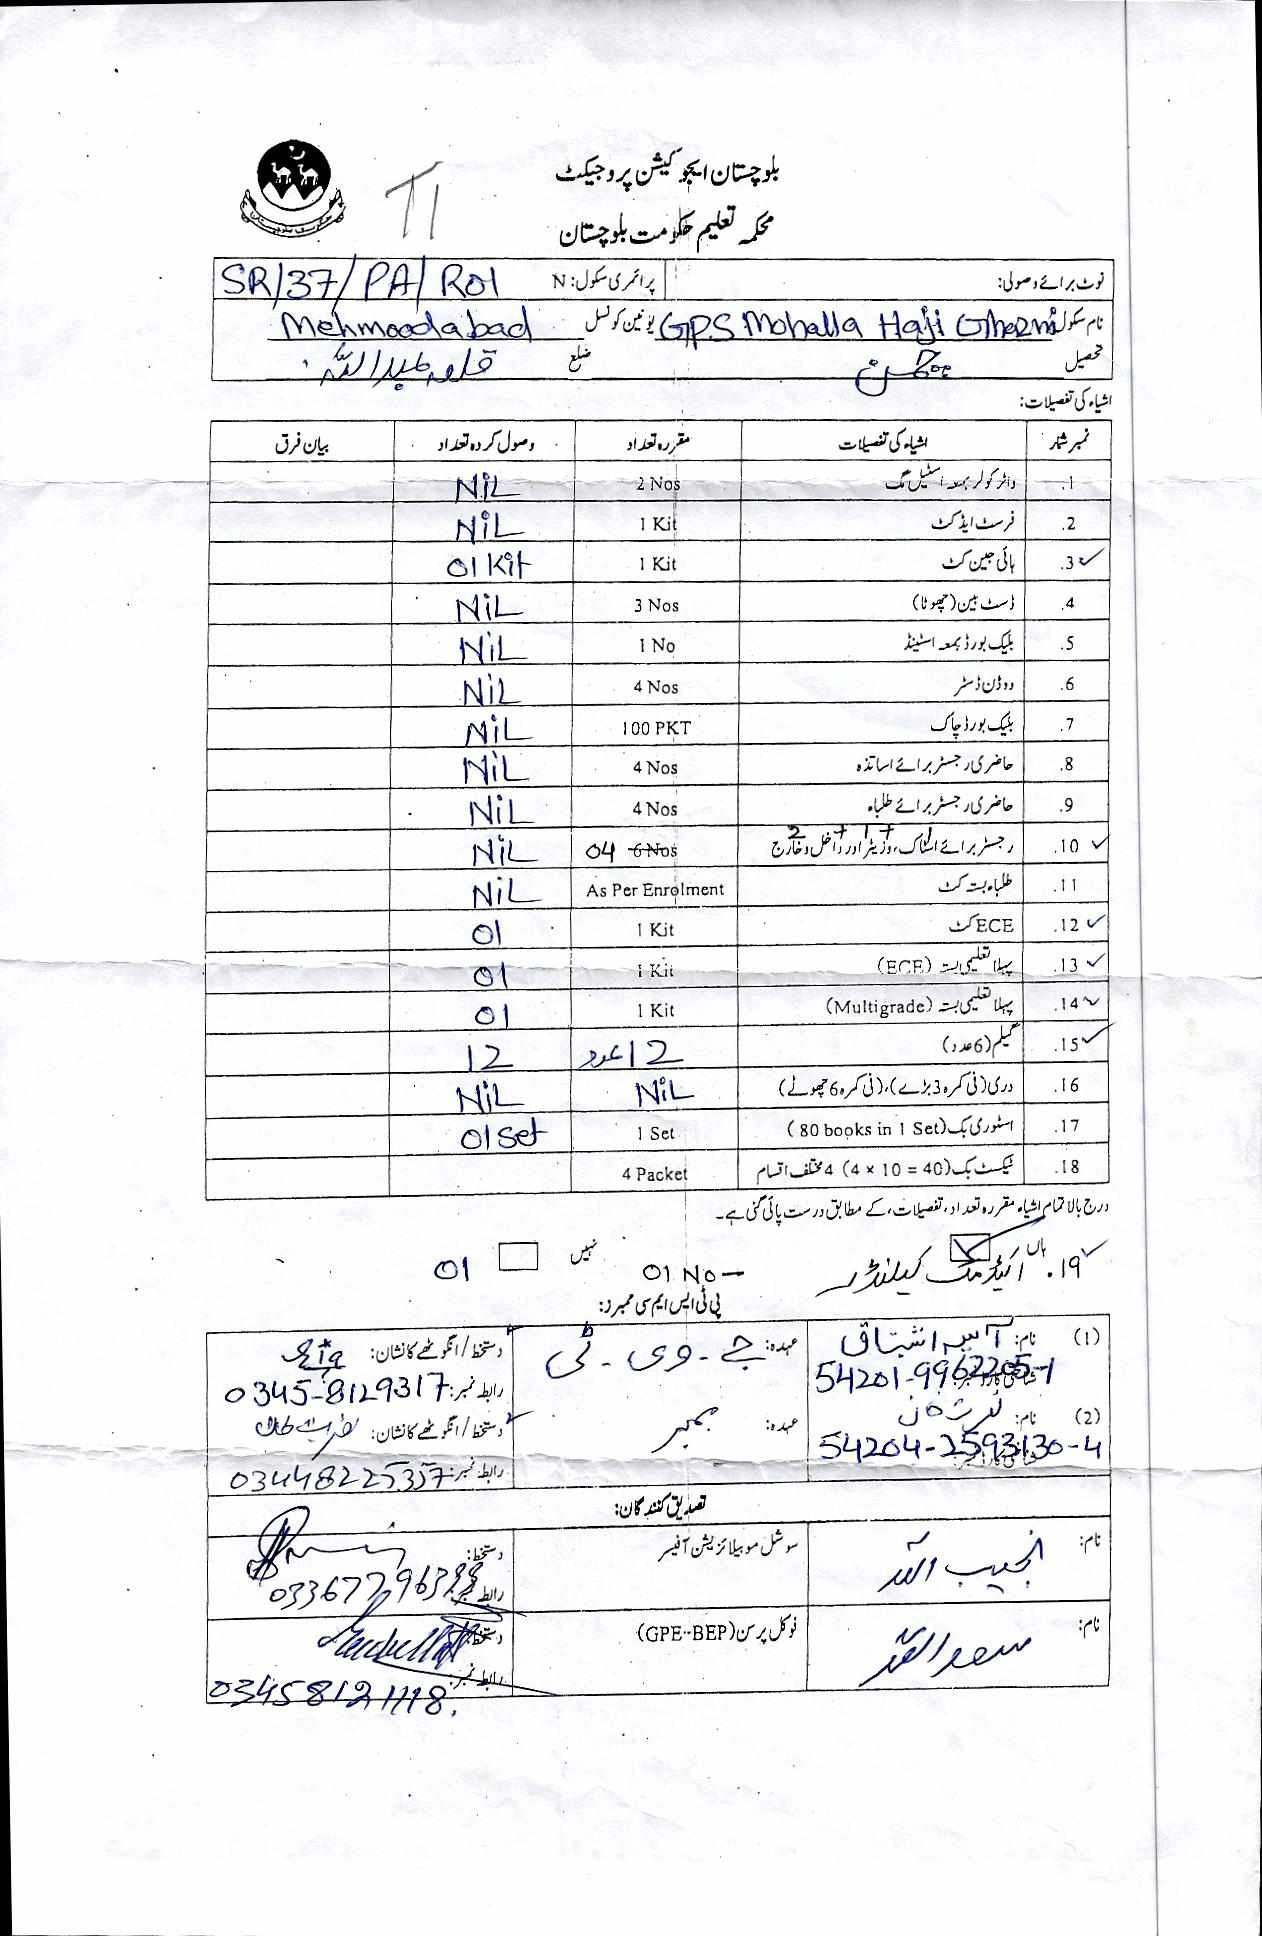 بلوچستان ایجوکیشن پروجیکٹ
T1
محکمہ تعلیم حکومت بلوچستان
نوٹ برائے وصولی: پرائمری سکول: N SR/37/PA/R01
نام سکول GPS Mohalla Haji Ghazni یونین کونسل Mehmoodabad
تحصیل چمن ضلع قلعہ عبداللہ
اشیاء کی تفصیلات:
نمبر شمار اشیاء کی تفصیلات مقررہ تعداد وصول کردہ تعداد بیان فرق
1. واٹر کولر بمعہ اسٹیل مگ 2 Nos NiL
2. فرسٹ ایڈ کٹ 1 Kit NiL
3. ہائی جین کٹ 1 Kit 01 Kit
4. ڈسٹ بین (چھوٹا) 3 Nos NiL
5. بلیک بورڈ بمعہ اسٹینڈ 1 No NiL
6. ووڈن ڈسٹر 4 Nos NiL
7. بلیک بورڈ چاک 100 PKT NiL
8. حاضری رجسٹر برائے اساتذہ 4 Nos NiL
9. حاضری رجسٹر برائے طلباء 4 Nos NiL
2 + 1 + 1
10. رجسٹر برائے اسٹاک، وزیٹر اور داخل و خارج 6 Nos 04 NiL
11. طلباء بستہ کٹ As Per Enrolment NiL
12. ECE کٹ 1 Kit 01
13. پہلا تعلیمی بستہ (ECE) 1 Kit 01
14. پہلا تعلیمی بستہ (Multigrade) 1 Kit 01
15. گیلم (6 عدد) 12 عدد 12
16. دری (فی کمرہ 3 بڑے)، (فی کمرہ 6 چھوٹے) NiL NiL
17. اسٹوری بک (80 books in 1 Set) 1 Set 01 Set
18. ٹیکسٹ بک (4 × 10 = 40) 4 مختلف اقسام 4 Packet
درج بالا تمام اشیاء مقررہ تعداد، تفصیلات، کے مطابق درست پائی گئی ہے۔
ہاں نہیں
19. اکیڈمک کیلنڈر 01 No- 01
پی ٹی ایس ایم سی ممبرز:
(1) نام: آسیہ اشتیاق عہدہ: جے ۔ وی ۔ ٹی دستخط/انگوٹھے کا نشان:
شناختی کارڈ نمبر: 54201-9962205-1 رابطہ نمبر: 0345-8129317
(2) نام: عہدہ: ممبر دستخط/انگوٹھے کا نشان:
شناختی کارڈ نمبر: 54204-2593130-4 رابطہ نمبر: 03448225357
تصدیق کنندگان:
نام: نجیب اللہ سوشل موبیلائزیشن آفیسر دستخط:
رابطہ نمبر:
نام: سعد اللہ فوکل پرسن (GPE-BEP) دستخط:
رابطہ نمبر: 03458121118.